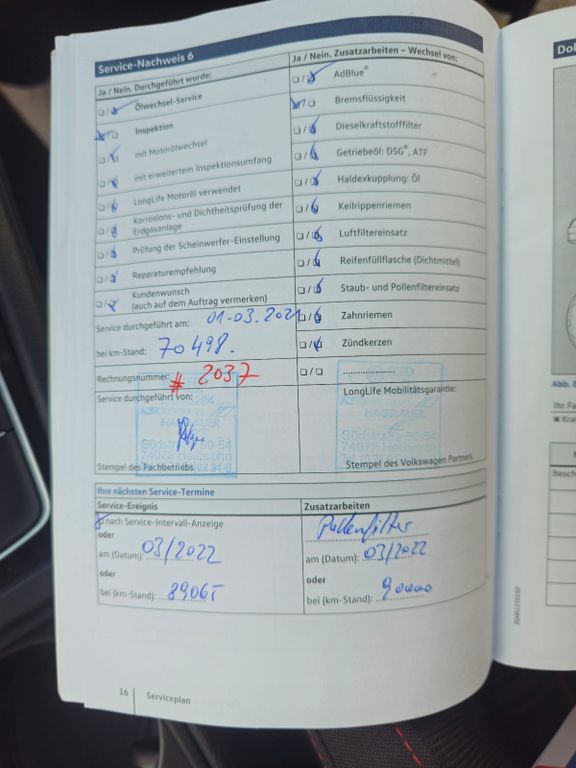 Service-Nachweis 6
Ja / Nein. Durchgeführt wurde:
Ölwechsel-Service
Inspektion
mit Motorölwechsel
mit erweitertem Inspektionsumfang
LongLife Motoröl verwendet
Korrosions- und Dichtheitsprüfung der
Erdgasanlage
Prüfung der Scheinwerfer-Einstellung
Reparaturempfehlung
Kundenwunsch
(auch auf dem Auftrag vermerken)
Service durchgeführt am: 01-03.2021
bei km-Stand: 70498.
Rechnungsnummer: # 2037
Service durchgeführt von:
HAGELAUER
Südstraße 50-54
74072 Heilbronn
Stempel des Fachbetriebs
Ja / Nein. Zusatzarbeiten – Wechsel von:
AdBlue®
Bremsflüssigkeit
Dieselkraftstofffilter
Getriebeöl: DSG®, ATF
Haldexkupplung: Öl
Keilrippenriemen
Luftfiltereinsatz
Reifenfüllflasche (Dichtmittel)
Staub- und Pollenfiltereinsatz
Zahnriemen
Zündkerzen
LongLife Mobilitätsgarantie:
HAGELAUER
Südstraße 50-54
74072 Heilbronn
Stempel des Volkswagen Partners
Ihre nächsten Service-Termine
Service-Ereignis
nach Service-Intervall-Anzeige
oder
am (Datum): 03/2022
oder
bei (km-Stand):
Zusatzarbeiten
Pollenfilter
am (Datum): 03/2022
oder
bei (km-Stand): 90000
16 Serviceplan
Abb.
Ihr Fa